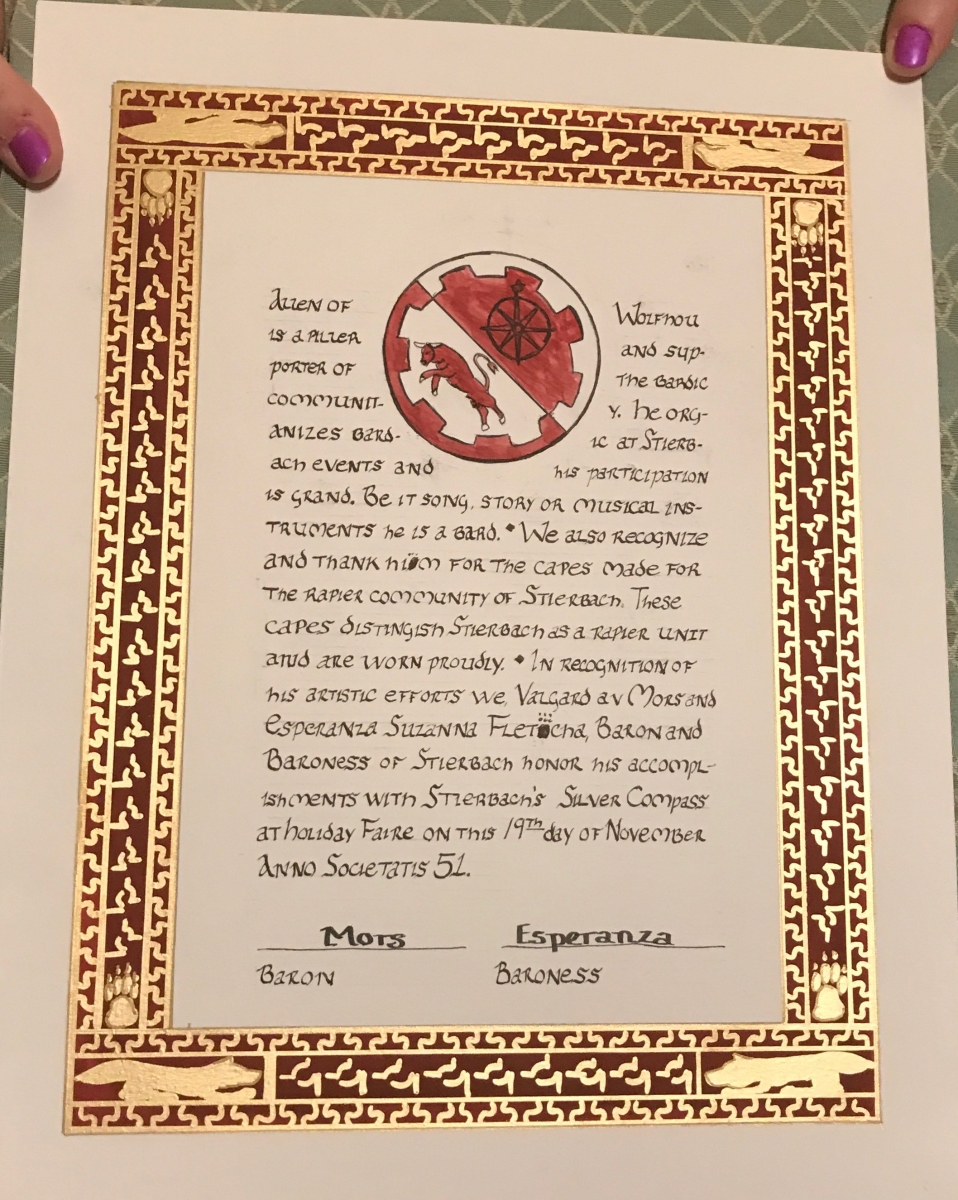 Allen of Wolfhou
is a piller and sup-
porter of The Bardic
communit- y. he org-
anizes bard- ic at Stierb-
ach events and his participation
is grand. Be it song, story or musical ins-
truments he is a bard. • We also recognize
and thank him for the capes made for
the rapier community of Stierbach. These
capes distingish Stierbach as a rapier unit
and are worn proudly. • In recognition of
his artistic efforts we, Valgard av Mors and
Esperanza Suzanna Fletcha, Baron and
Baroness of Stierbach honor his accompl-
ishments with Stierbach's Silver Compass
at holiday Faire on this 19th day of November
Anno Societatis 51.
Mors Esperanza
Baron Baroness